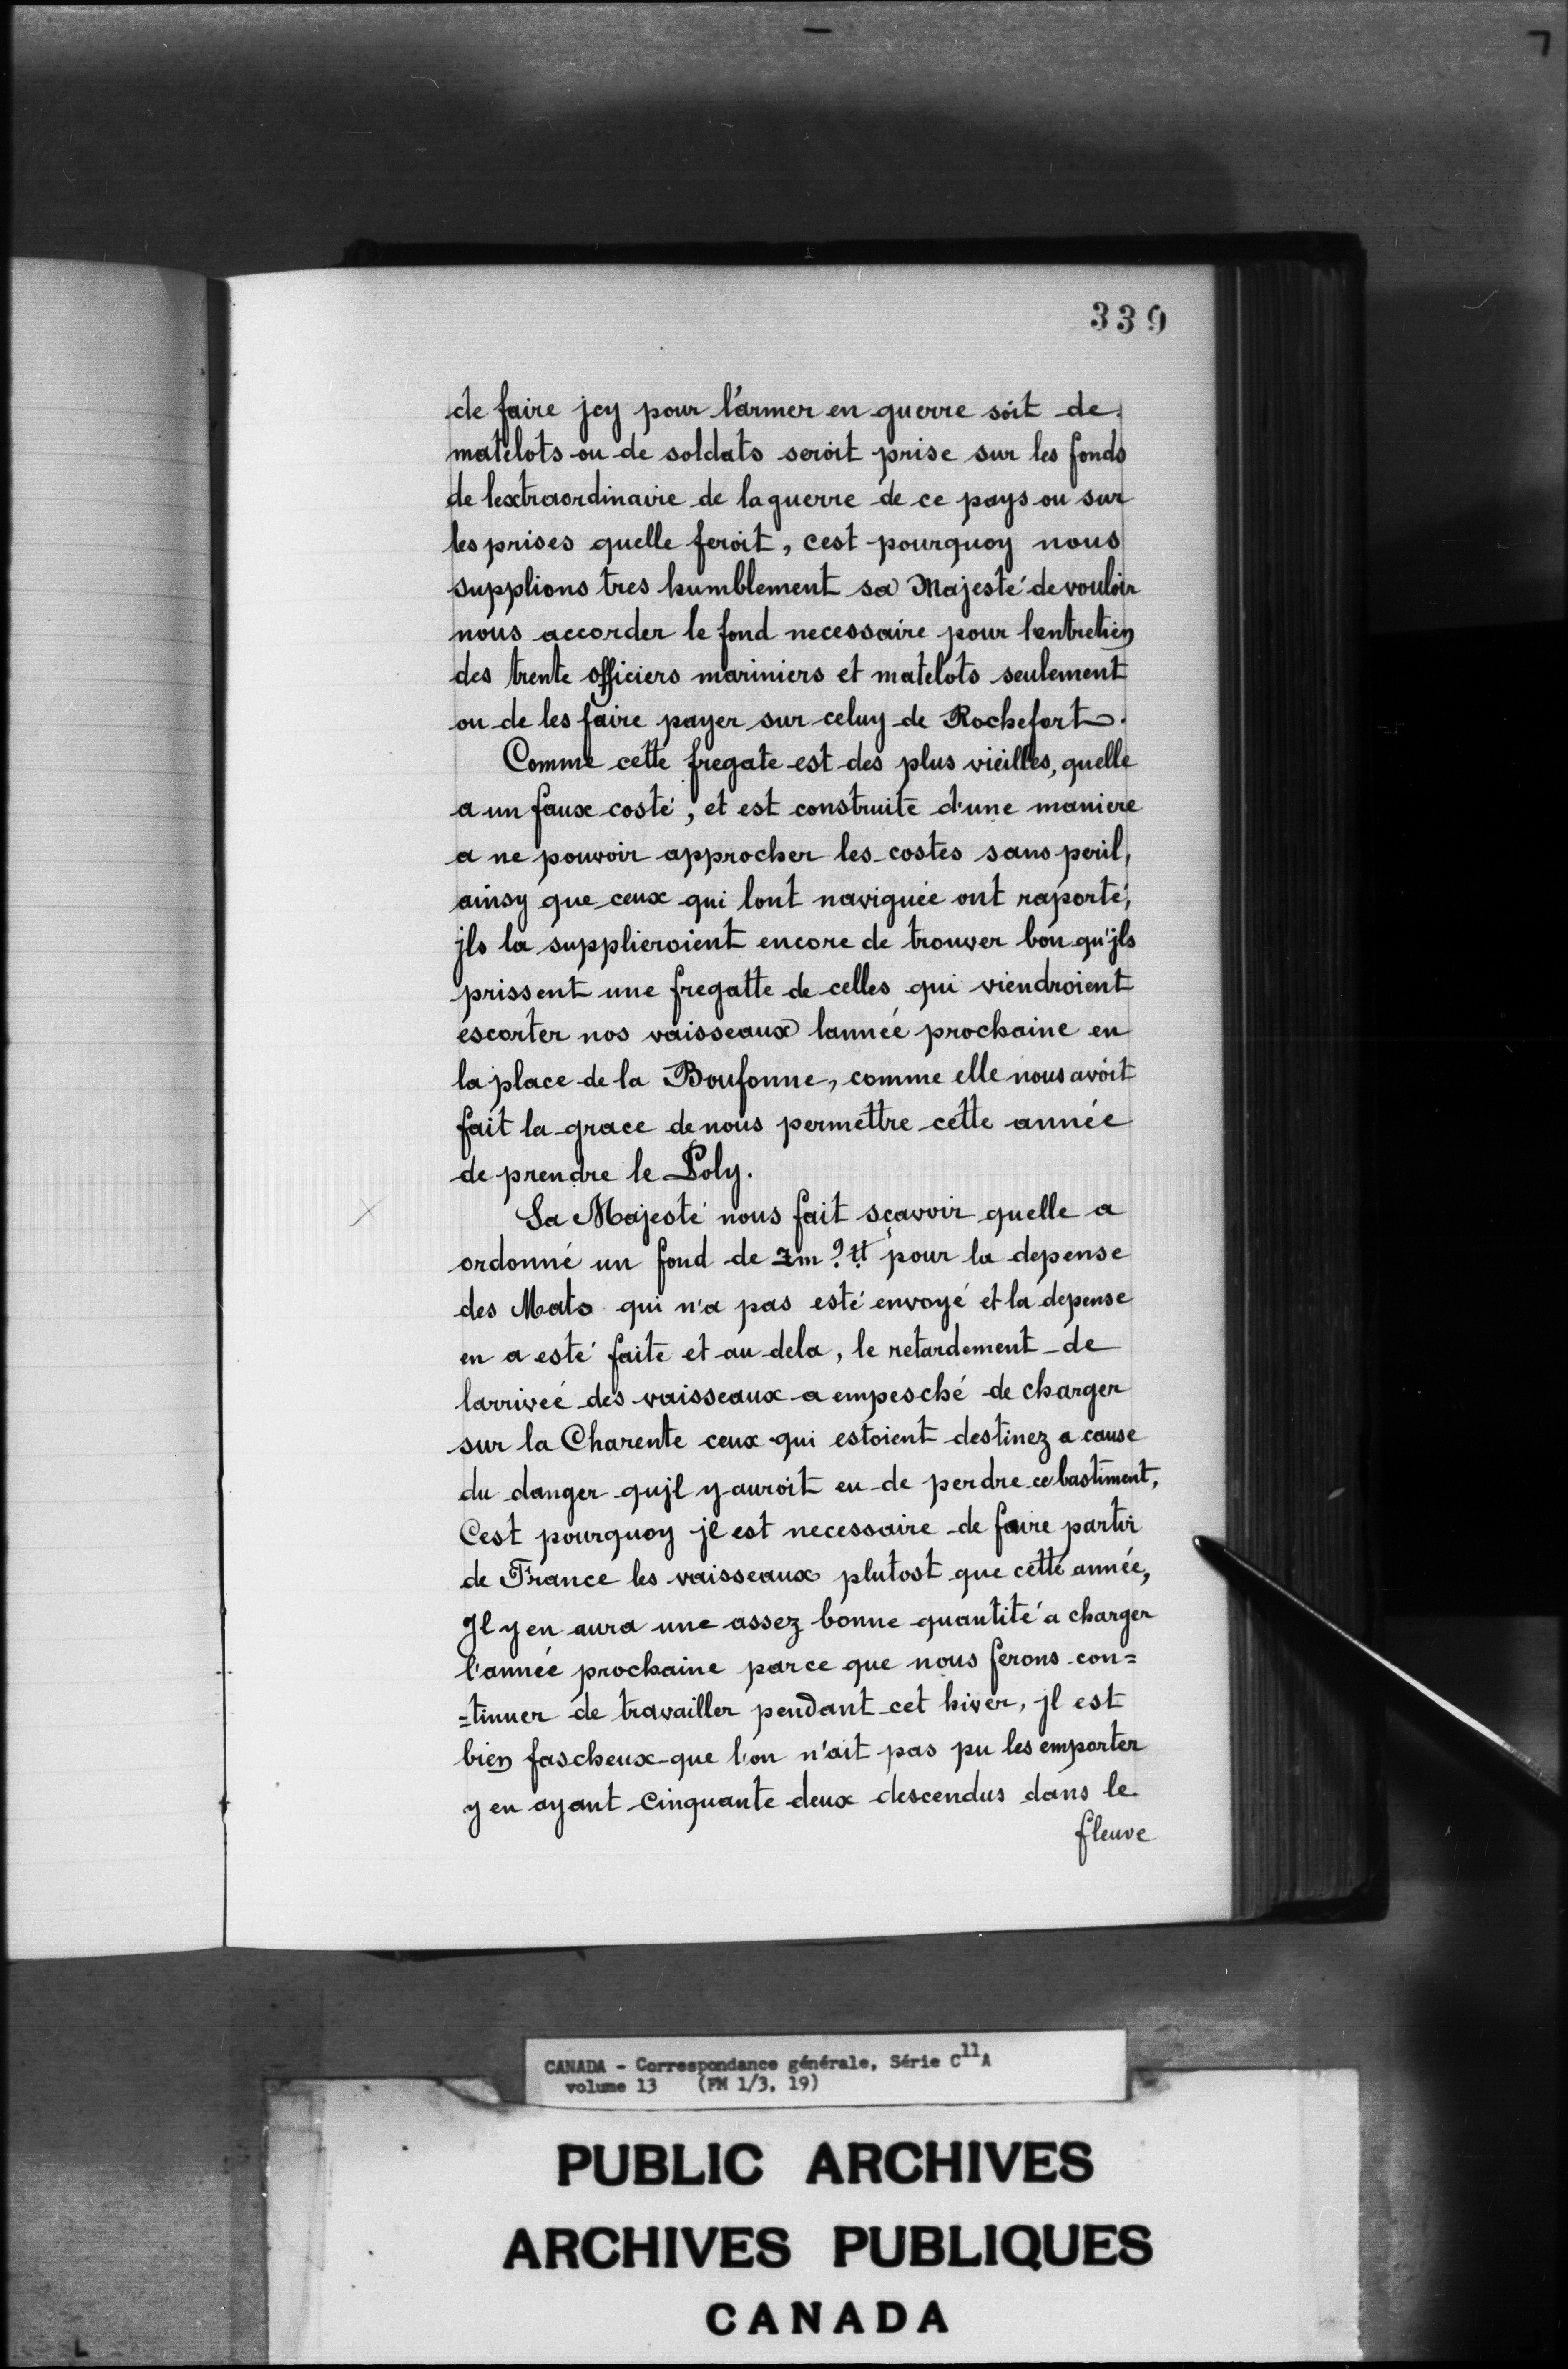 339
de faire jcy pour l'armer en guerre soit de
matelots ou de soldats seroit prise sur les fonds
de lextraordinaire de la guerre de ce pays ou sur
les prises quelle feroit, cest pourquoy nous
supplions tres humblement sa Majesté de vouloir
nous accorder le fond necessaire pour lentretien
des trente officiers mariniers et matelots seulement
ou de les faire payer sur celuy de Rochefort.
Comme cette fregate est des plus vieilles, quelle
a un faux costé, et est construite d'une maniere
a ne pouvoir approcher les costes sans peril,
ainsy que ceux qui lont naviguée ont raporté,
jls la supplieroient encore de trouver bon qu'jls
prissent une fregatte de celles qui viendroient
escorter nos vaisseaux lannée prochaine en
la place de la Boufonne, comme elle nous avoit
fait la grace de nous permettre cette année
de prendre le Poly.
Sa Majesté nous fait sçavoir quelle a
ordonné un fond de ? tt pour la depense
des Mats qui n'a pas esté envoyé et la depense
en a esté faite et au dela, le retardement de
larriveé des vaisseaux a empesché de charger
sur la Charente ceux qui estoient destinez a cause
du danger qujl y auroit eu de perdre ce bastiment,
Cest pourquoy jl est necessaire de faire partir
de France les vaisseaux plutost que cette année,
Jl y en aura une assez bonne quantité a charger
l'année prochaine parce que nous ferons con=
=tinuer de travailler pendant cet hiver, jl est
bien fascheux que l'on n'ait pas pu les emporter
y en ayant Cinquante deux descendus dans le
fleuve
CANADA - Correspondance générale, Série C11A
volume 13 (FM 1/3, 19)
PUBLIC ARCHIVES
ARCHIVES PUBLIQUES
CANADA